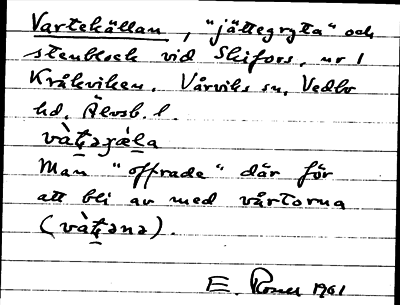 Vartekällan, "jättegryta" och
stenblock vid Skifors, nr 1
Kråkviken. Vårviks sn, Vedbo
hd, Älvsb. l.
Man "offrade" där för
att bli av med vårtorna
E. 1961